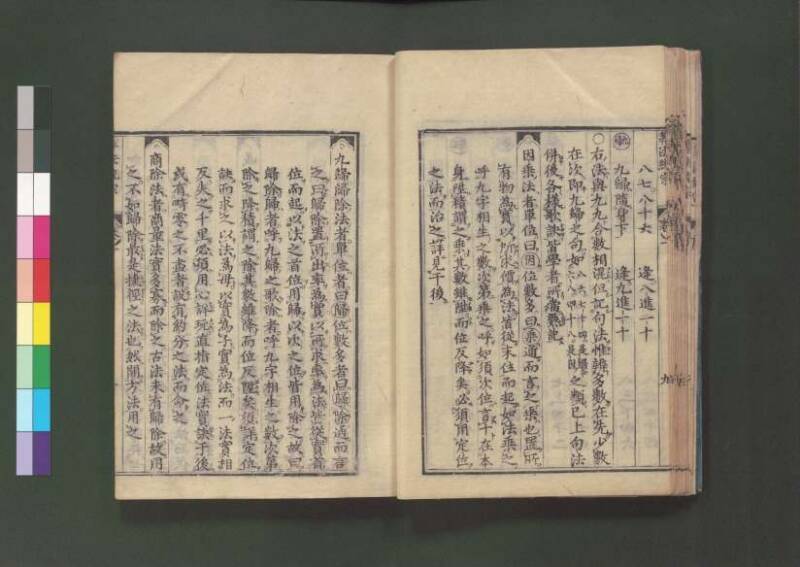 八七八十六　逢八進一十
九歸隨身下　逢九進一十
○右法與九九合數相混但記句法惟辨多數在先少數
在次即九歸之句如之類已上句法
併後各樣歌訣皆學者所當熟記
因乘法者單位曰因位數多曰乘通而言之乘也置所
有物為實以所求價為法皆從末位而起如法乘之
呼九字相生之數次第乘之呼如須次位言十在本
身陞積謂之乘其數雖陞而位反降矣必須用定位
之法而治之詳見于後
九歸歸除法者單位者曰歸位數多者曰歸除通而言
之曰歸除置所出率為實以所求率為法皆從實首
位而起以法之首位用歸以次之位皆用除之故曰
歸除歸者呼九歸之歌除者呼九字相生之數次第
除之降積謂之除其數雖降而位反陞矣須得定位
訣而求之以法為母以實為子實為法而一法實相
反失之千里必須用心詳玩直指定位法實訣于後
或有畸零之不盡者設有約分之法而命之
商除法者商量法實多寡而除之古法未有歸除故用
之不如歸除最是捷徑之法也然開方法用之